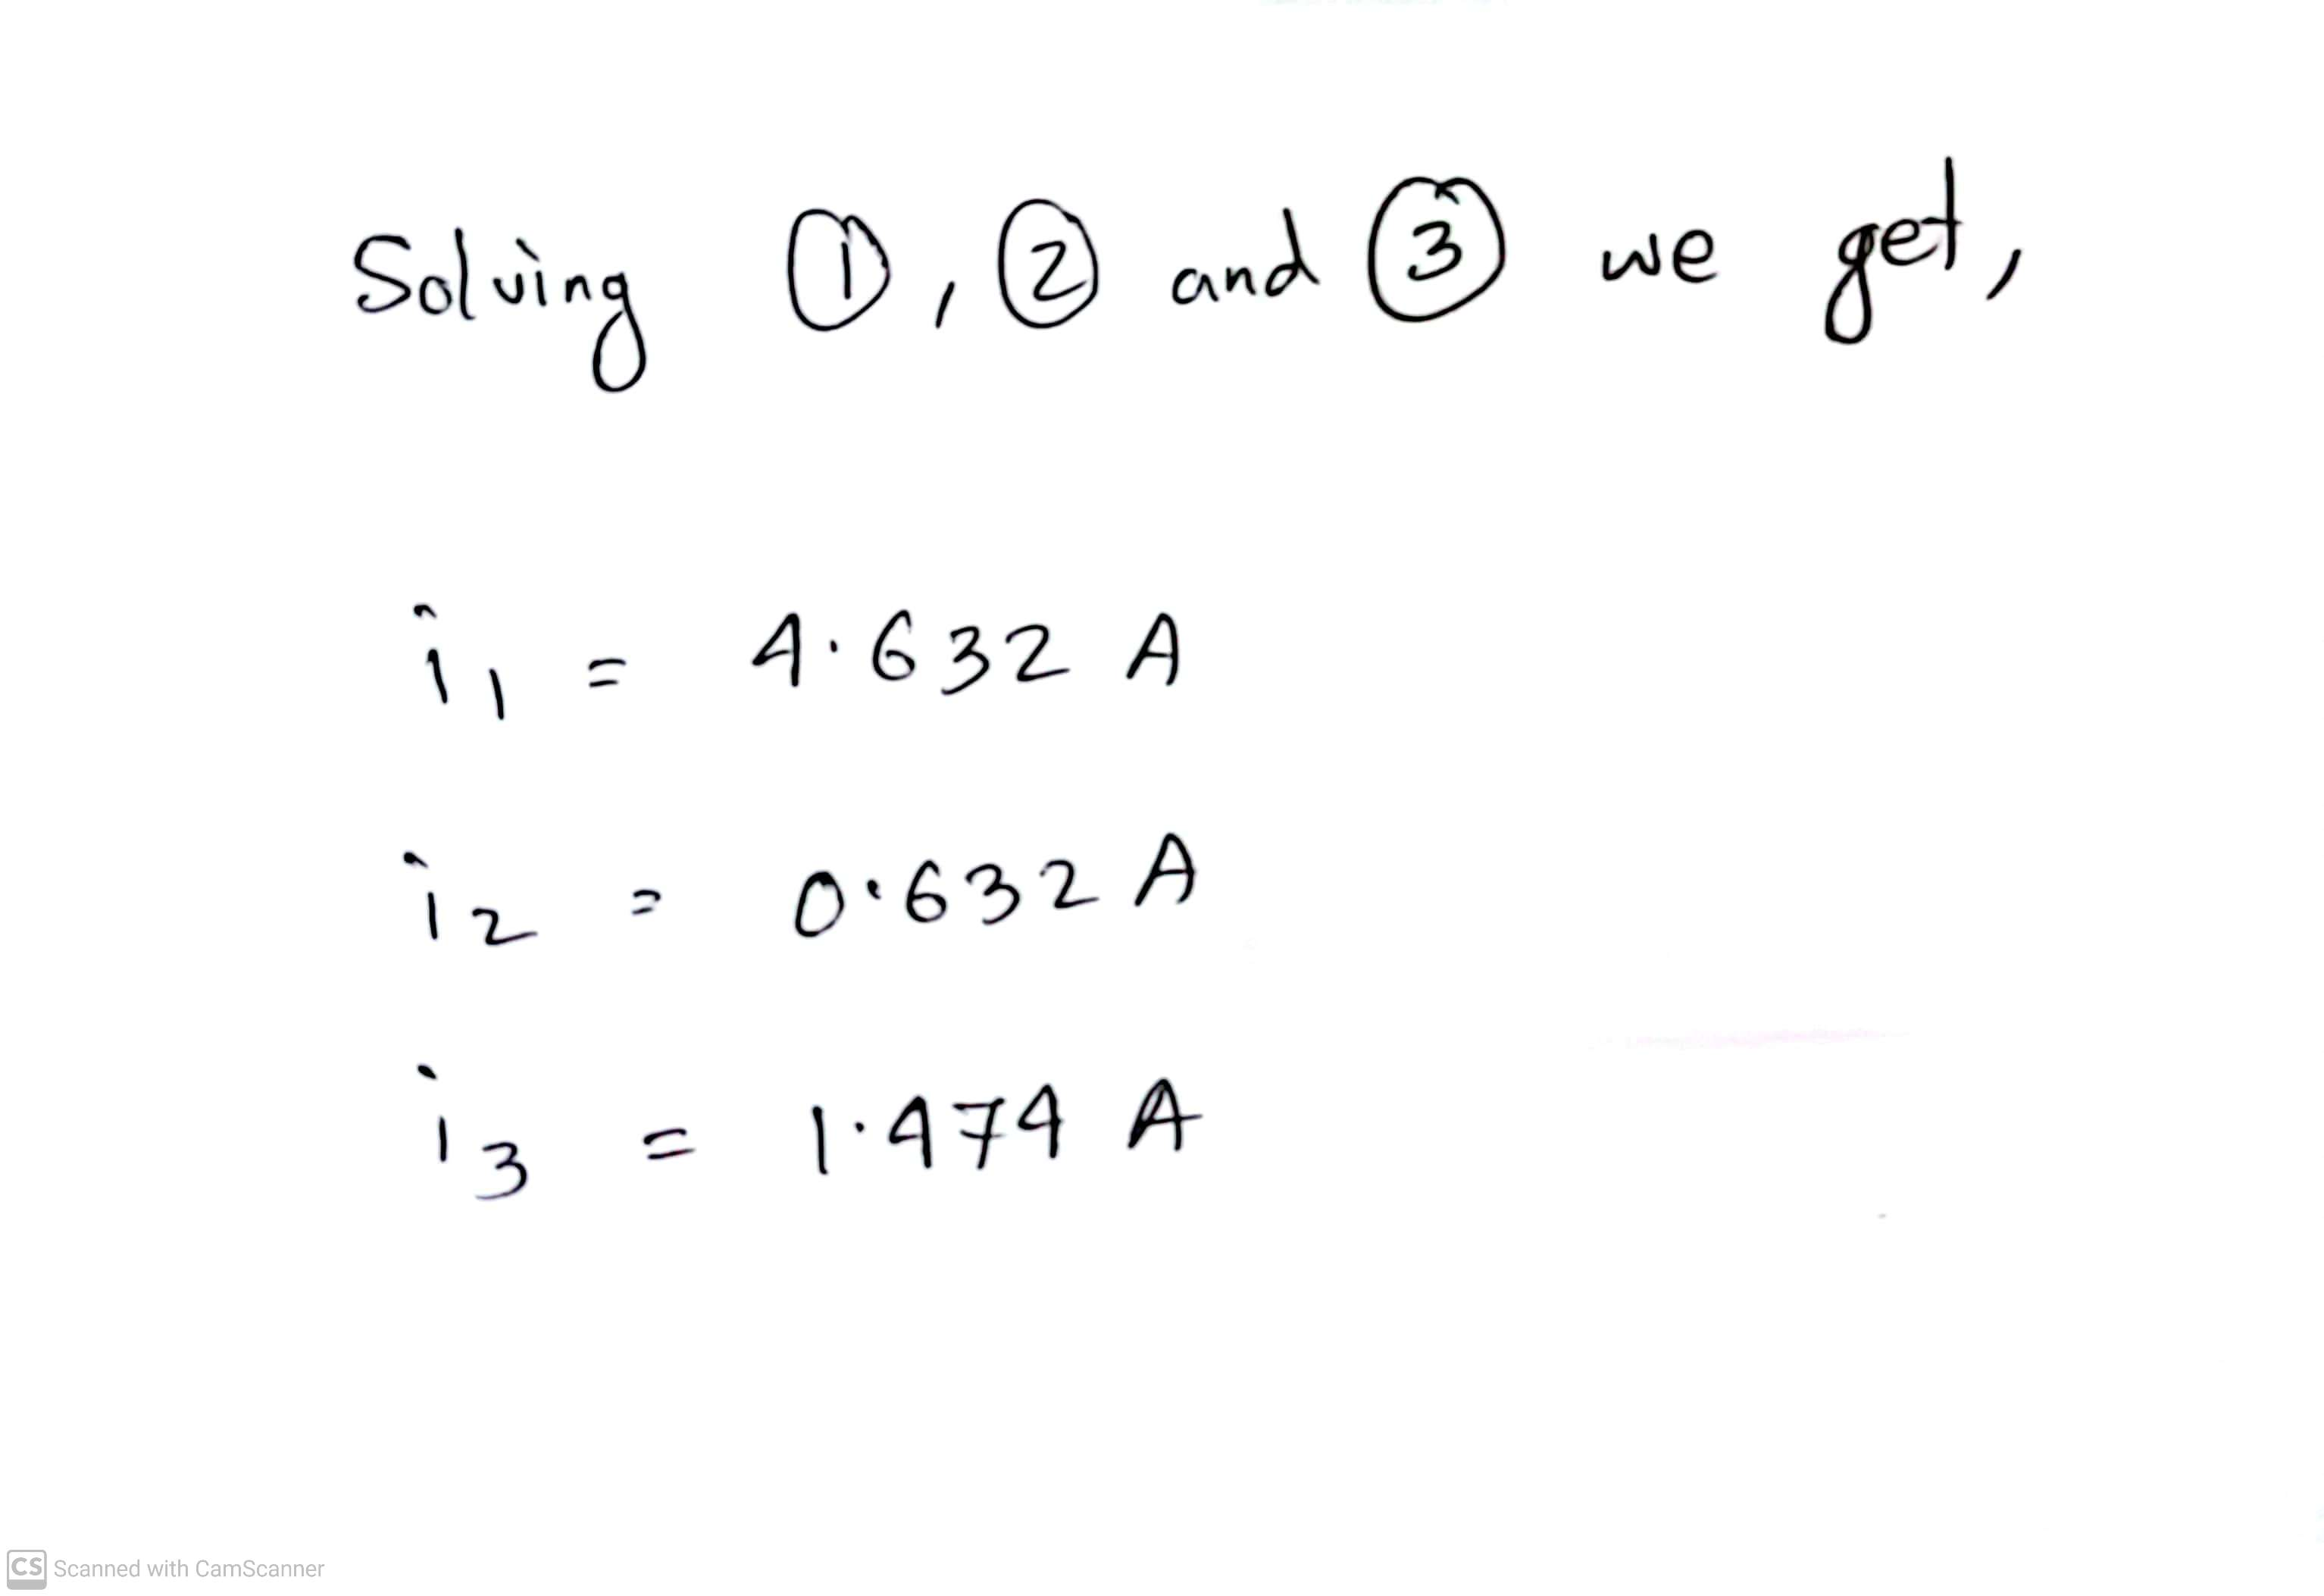 Solving ①, ② and ③ we get,
i₁ = 4.632 A
i₂ = 0.632 A
i₃ = 1.474 A
CS Scanned with CamScanner